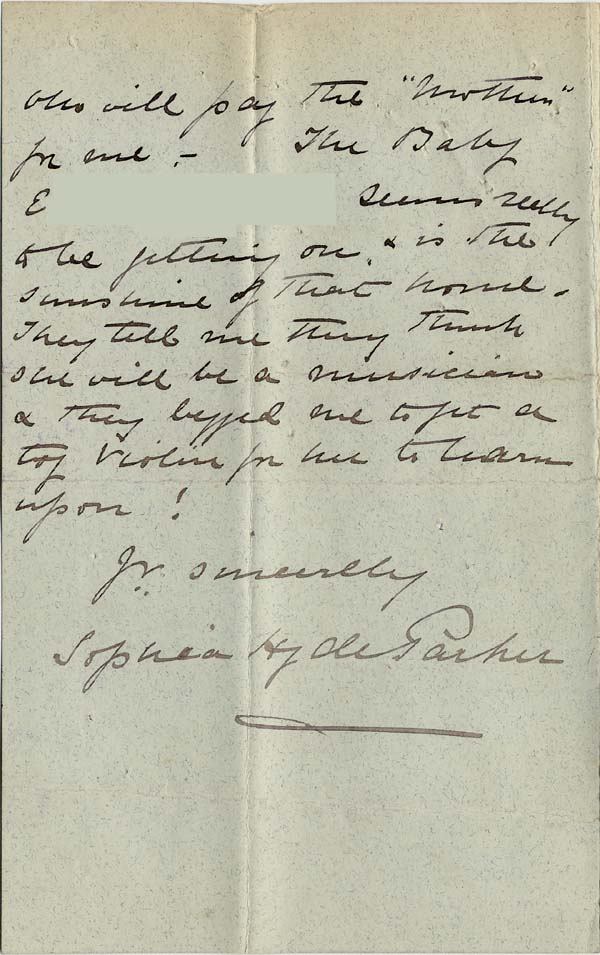 who will pay the "Mothers"
for me - The Baby
E seems really
to be getting on, & is the
sunshine of that home.
They tell me they think
she will be a musician
& they begged me to get a
toy Violin for her to learn
upon!
Yrs. sincerely
Sophia Hyde Parker